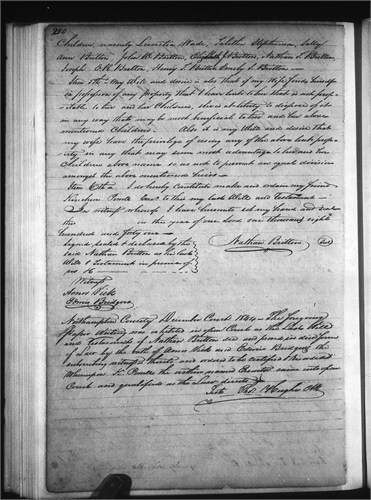 280
Children, namely Lucretia Wade, Tabitha Stephenson, Sally
Ann Britton, John W. Britton, Elizabeth J Britton, Nathan L Britton,
Joseph Britton, Henry Britton, Britton.
Item 5th - My Will and desire is also that if my Wife finds herself
in possession of any property that I have left to her that is not prof-
itable to her and her Children, she is at liberty to dispose of it
in any way that may be most beneficial to her and her above
mentioned Children. Also it is my Will and desire that
my wife have the privilege of using any of the above property
in any that may seem most advantage to her and her
Children above name so as not to prevent an equal division
amongst the above mentioned heirs.
Item 6th - I do hereby constitute make and ordain my friend
Kinchen Executor to this my last Will and Testament
In witness whereof I have hereunto set my hand and seal
this in this year of our Lord one thousand eight
hundred and forty one -
Signed sealed & declared by the
said Nathan Britton as his last
Will & Testament in presence of
us
Nathan Britton Seal
Witness
Amos Wicks
Edwin Bridgers
Northampton County December Court 1841 - The foregoing
paper Writing was exhibited in open Court as the last Will
and Testament of Nathan Britton decd and proved in due form
of Law by the oath of Amos Wicks and Edwin Bridgers the
subscribing witnesses thereto and ordered to be certified & recorded
Whereupon K. the within named Executor came into open
Court and qualified as the Law directs
Test. Hughes Clk